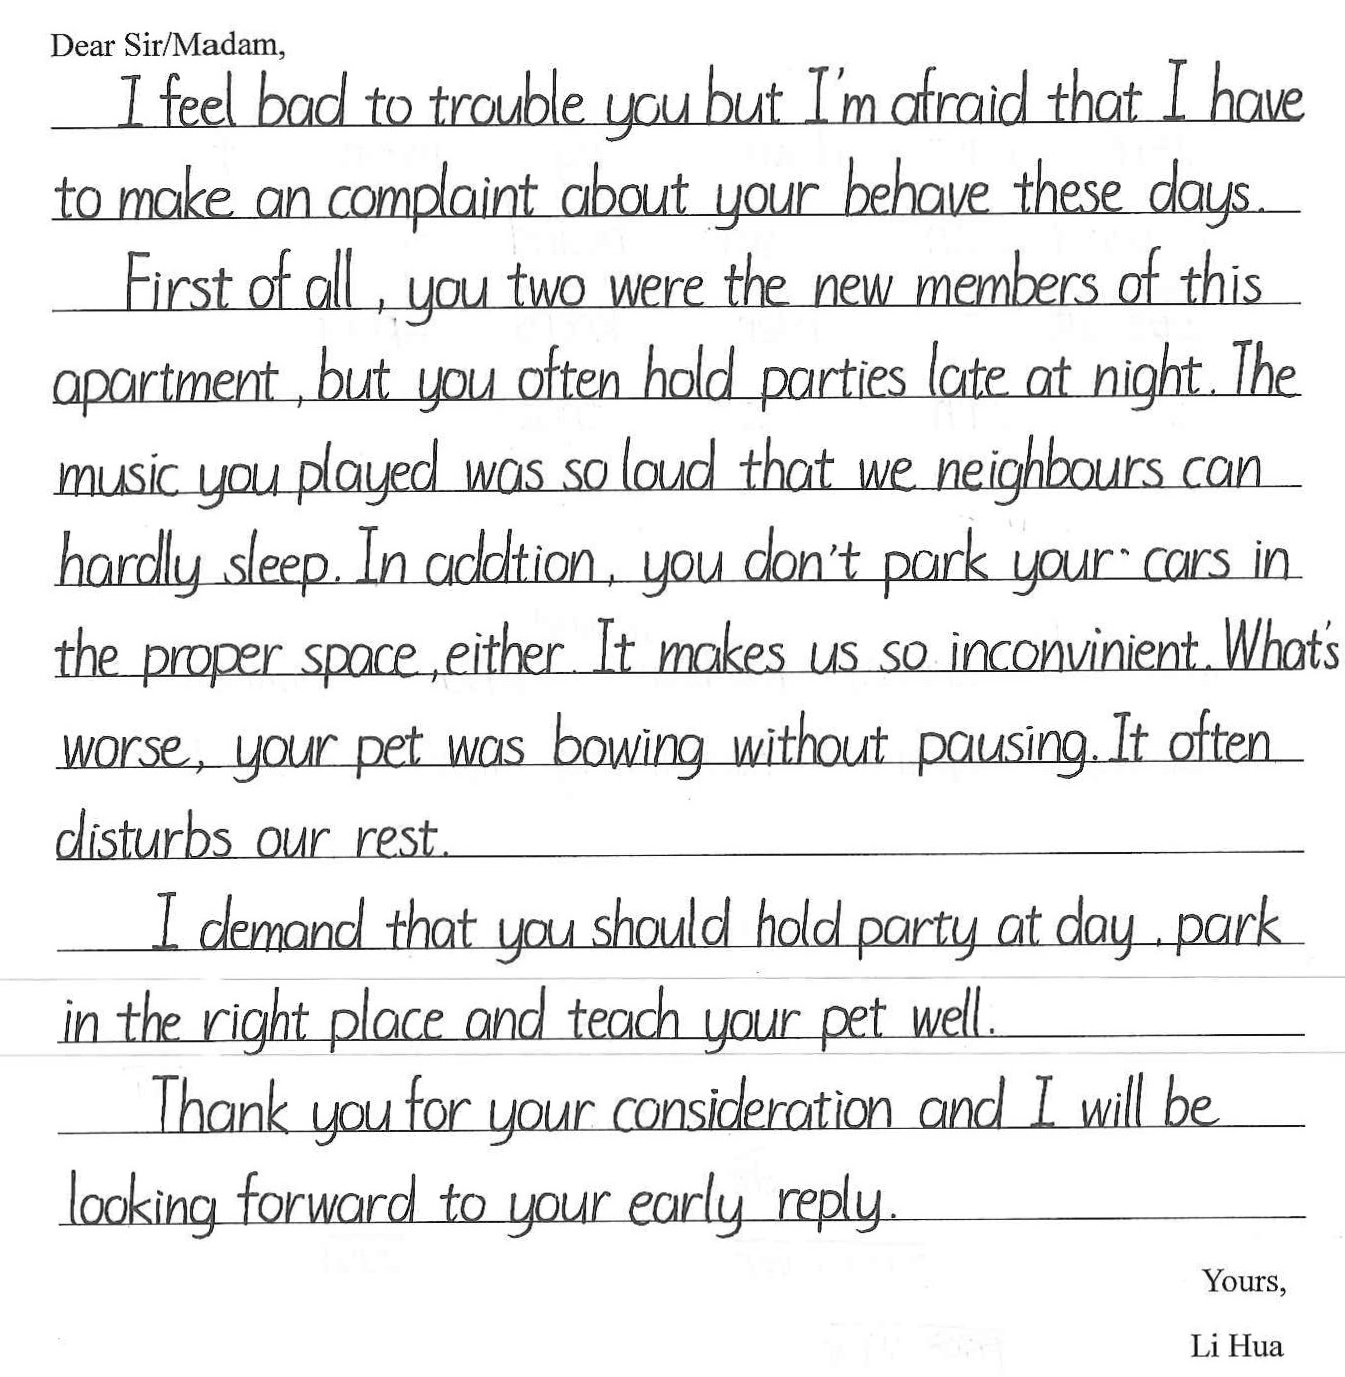 Dear Sir/Madam,
I feel bad to trouble you but I'm afraid that I have
to make an complaint about your behave these days.
First of all, you two were the new members of this
apartment, but you often hold parties late at night. The
music you played was so loud that we neighbours can
hardly sleep. In addtion, you don't park your cars in
the proper space, either. It makes us so inconvinient. What's
worse, your pet was bowing without pausing. It often
disturbs our rest.
I demand that you should hold party at day, park
in the right place and teach your pet well.
Thank you for your consideration and I will be
looking forward to your early reply.
Yours,
Li Hua